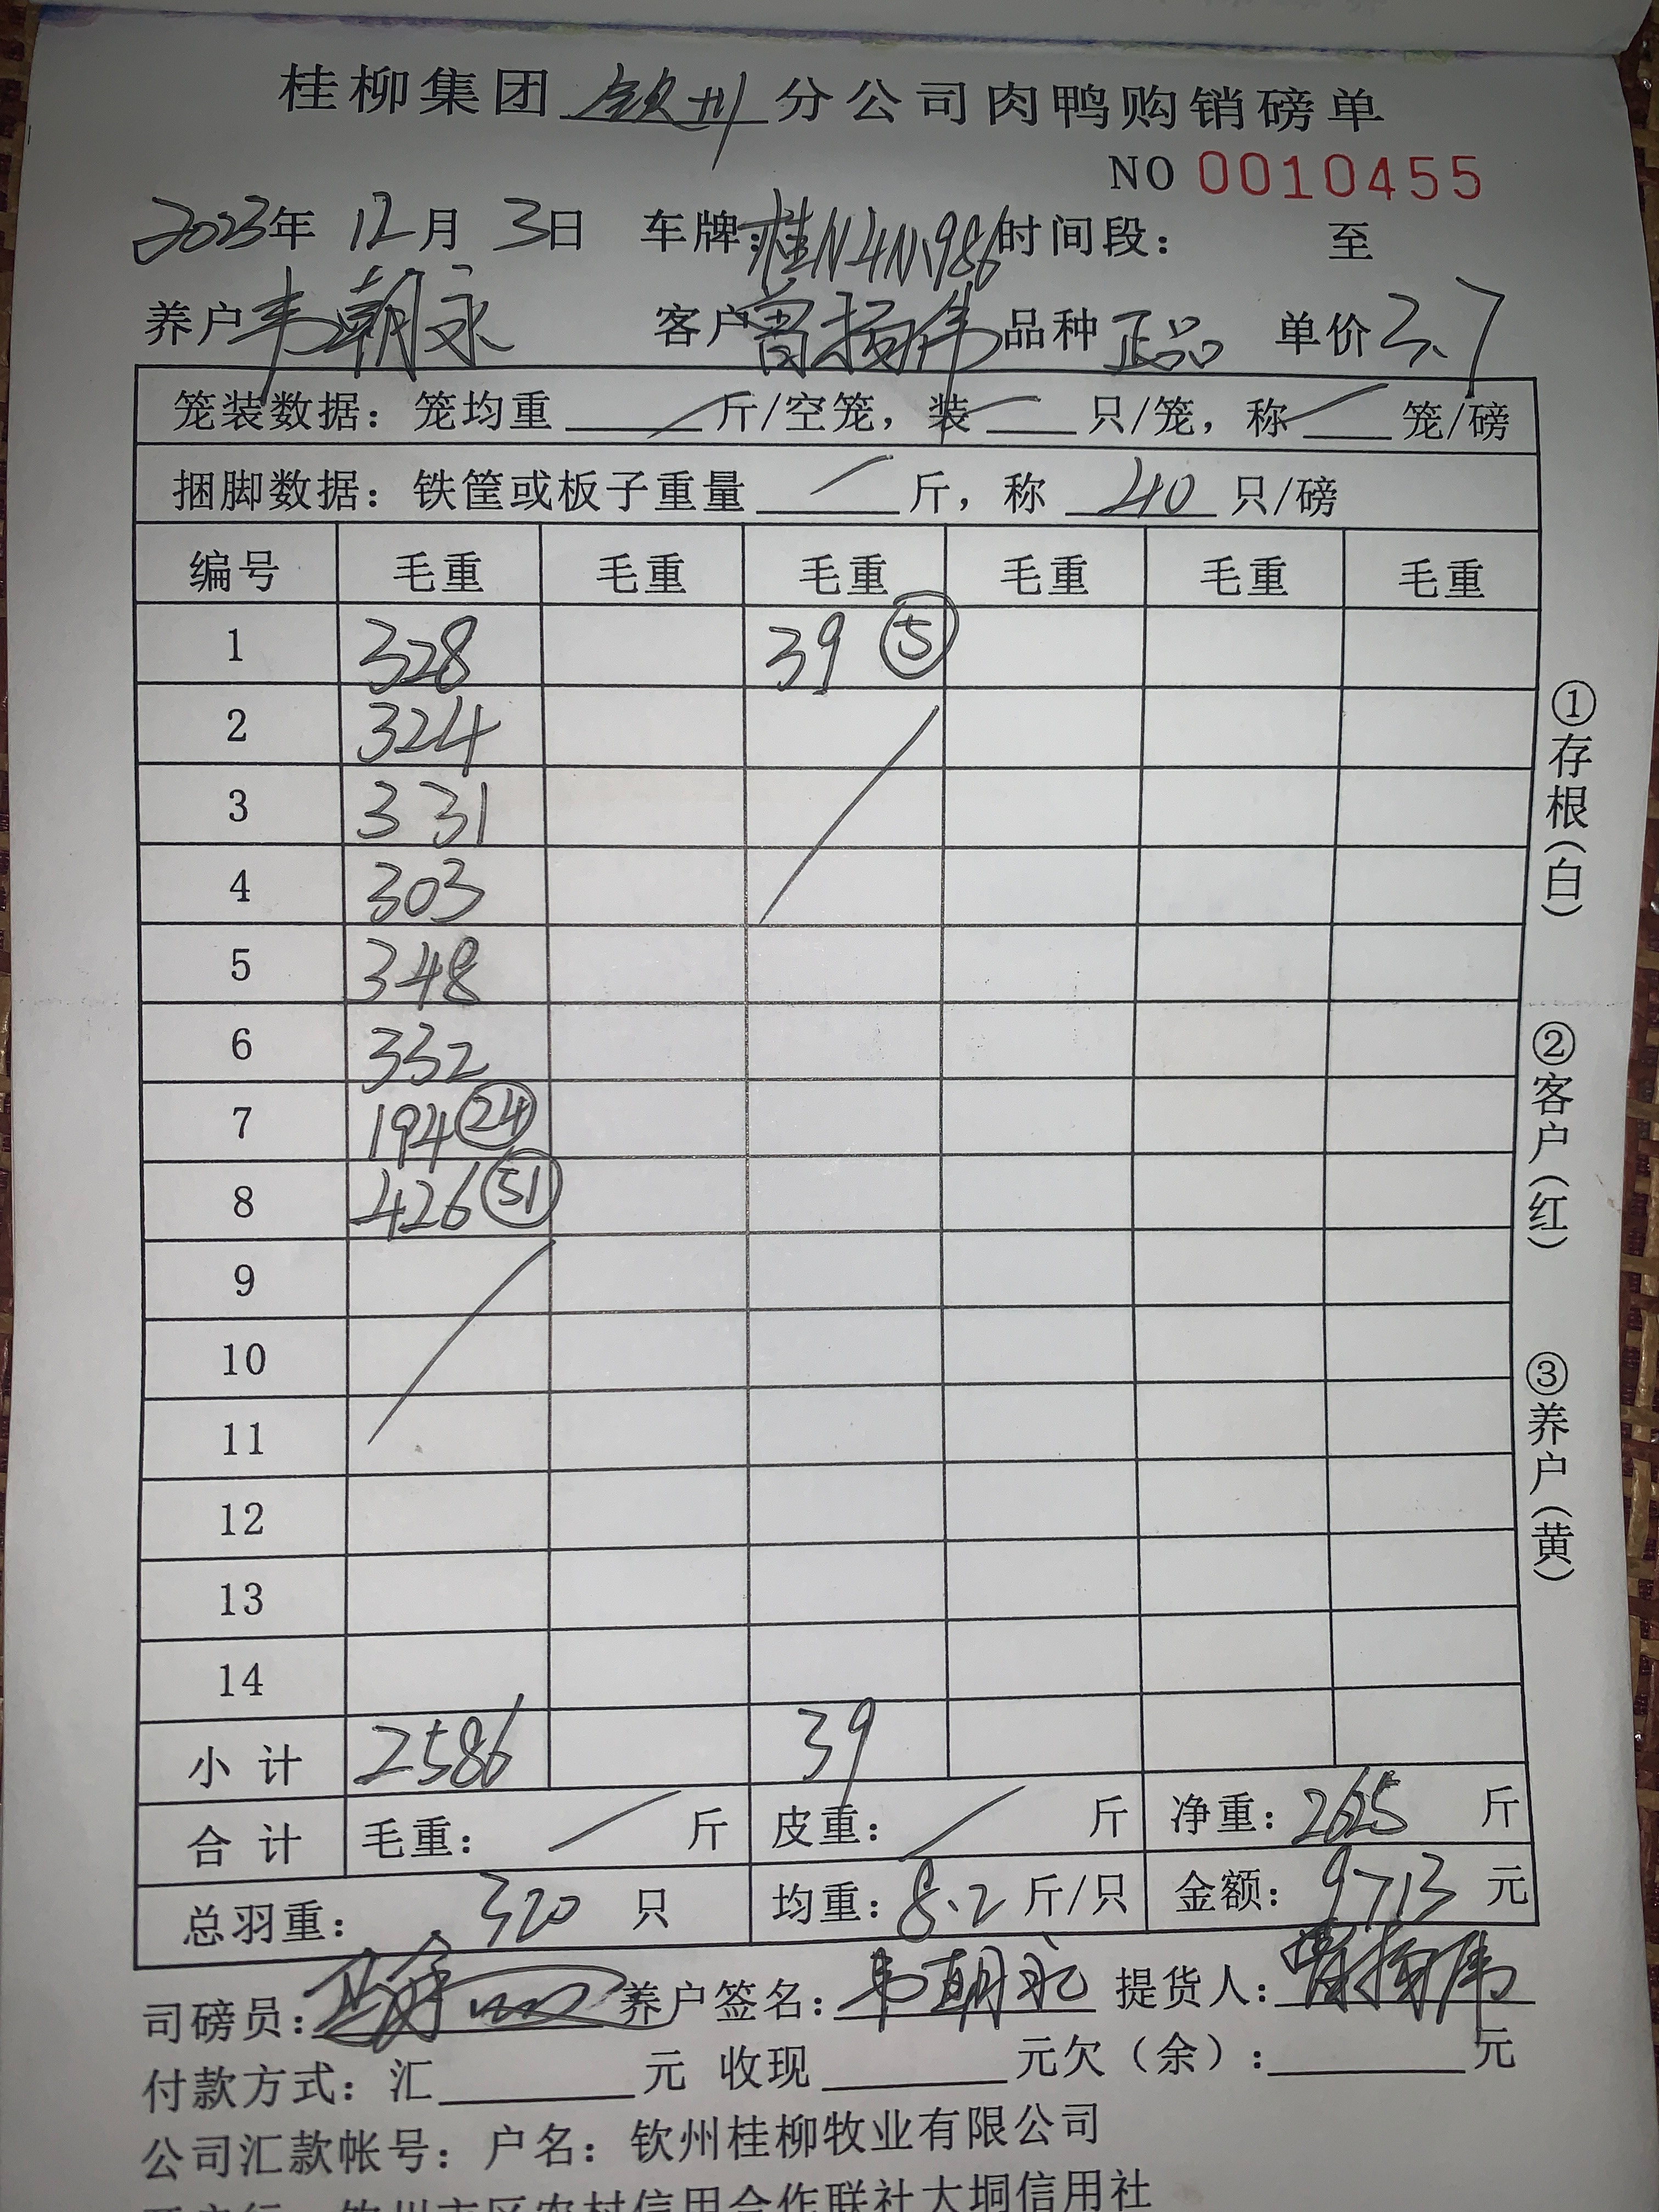 桂柳集团钦州分公司肉鸭购销磅单
NO 0010455
2023年 12月 3日 车牌:桂N4N986 时间段: 至
养户 韦朝永 客户 曾扬伟 品种 正品 单价 3.7
笼装数据:笼均重 / 斤/空笼,装 / 只/笼,称 / 笼/磅
捆脚数据:铁筐或板子重量 / 斤,称 40 只/磅
编号 毛重 毛重 毛重 毛重 毛重 毛重
1 328 39 ⑤
2 324
3 331
4 303
5 348
6 332
7 194 ㉔
8 426 (51)
9
10
11
12
13
14
小计 2586 39
合计 毛重: / 斤 皮重: / 斤 净重: 2625 斤
总羽重: 320 只 均重: 8.2 斤/只 金额: 9713 元
司磅员: 养户签名: 韦朝永 提货人: 曾扬伟
付款方式:汇 元 收现 元欠(余): 元
公司汇款帐号:户名:钦州桂柳牧业有限公司
开户行:钦州市区农村信用合作联社大垌信用社
①存根(白)
②客户(红)
③养户(黄)